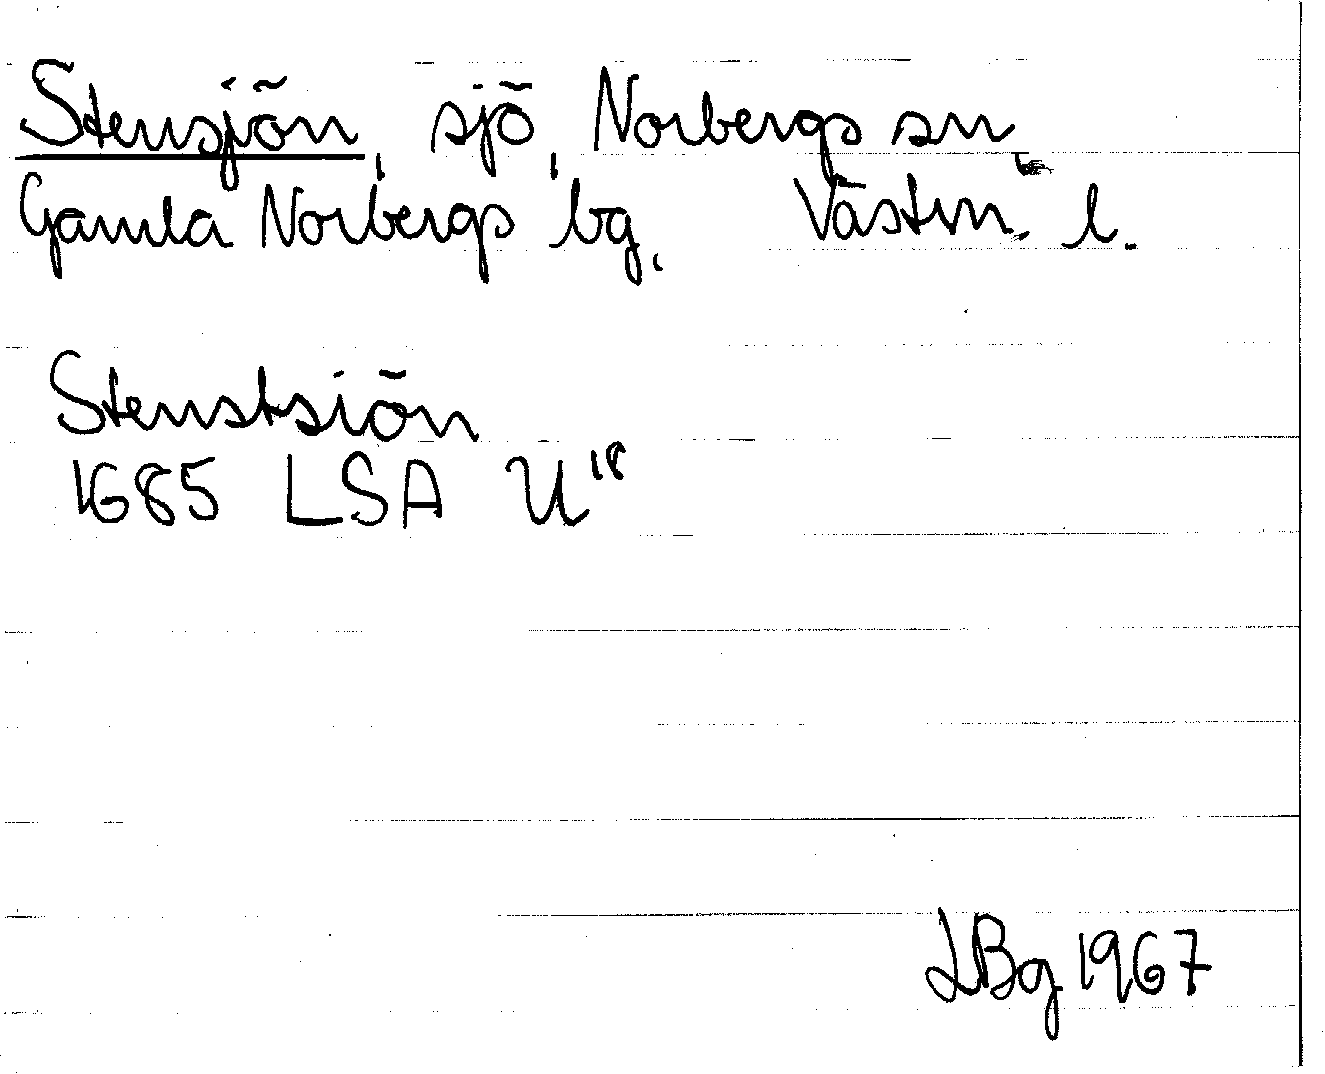 Stensjön, sjö, Norbergs sn,
Gamla Norbergs bg, Västm. l.
Stenstsiön
1685 LSA U¹⁸
LBg 1967